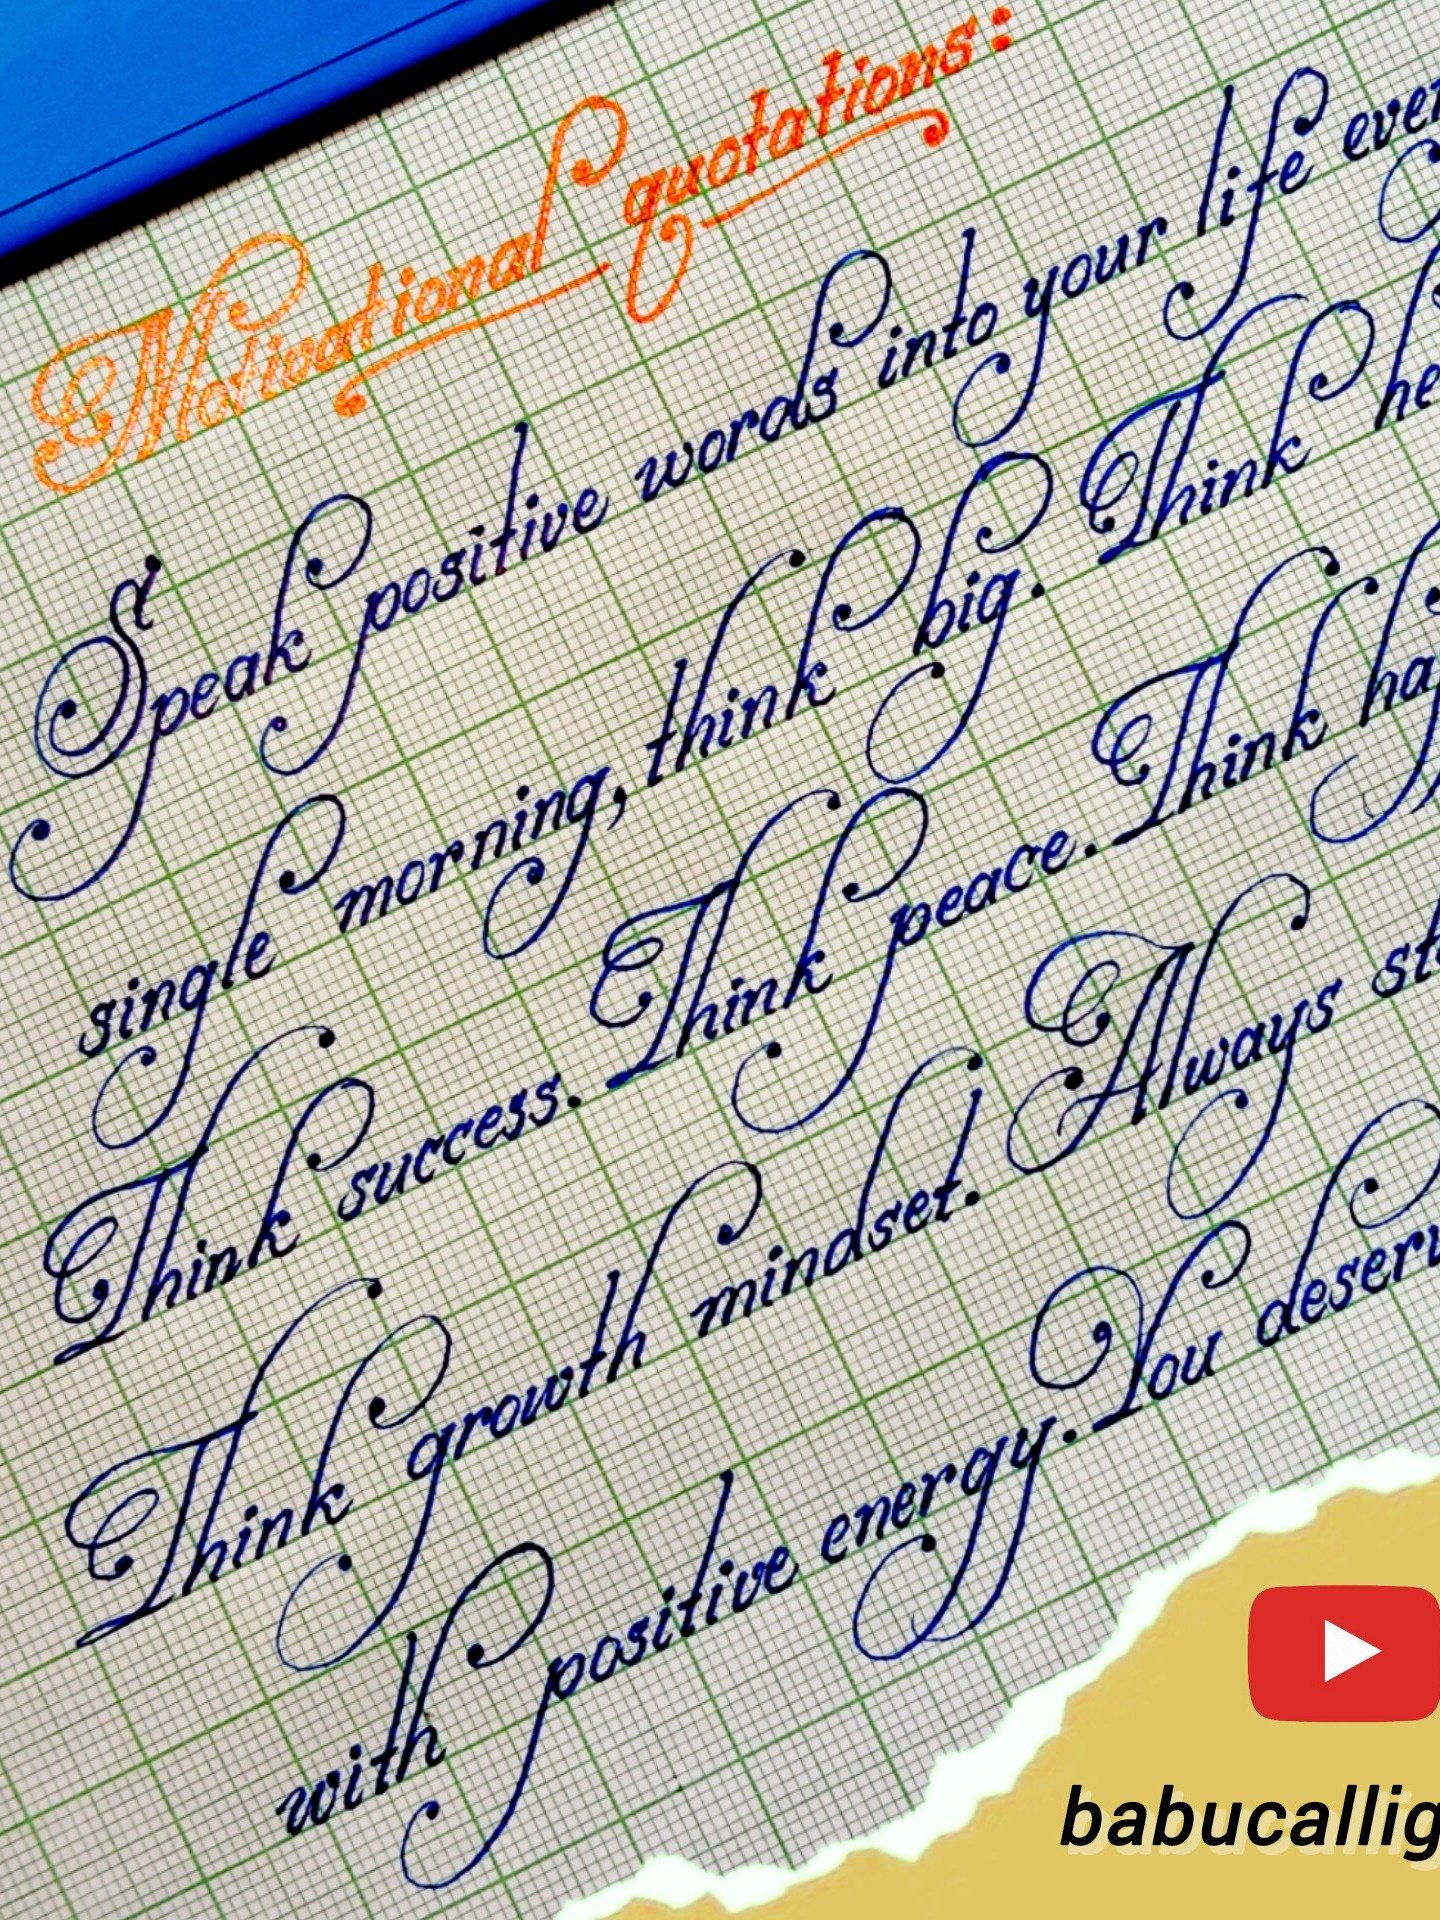 Motivational quotations:
Speak positive words into your life ever
single morning, think big. Think he
Think success. Think peace. Think ha
Think growth mindset. Always st
with positive energy. You deserv
babucallig